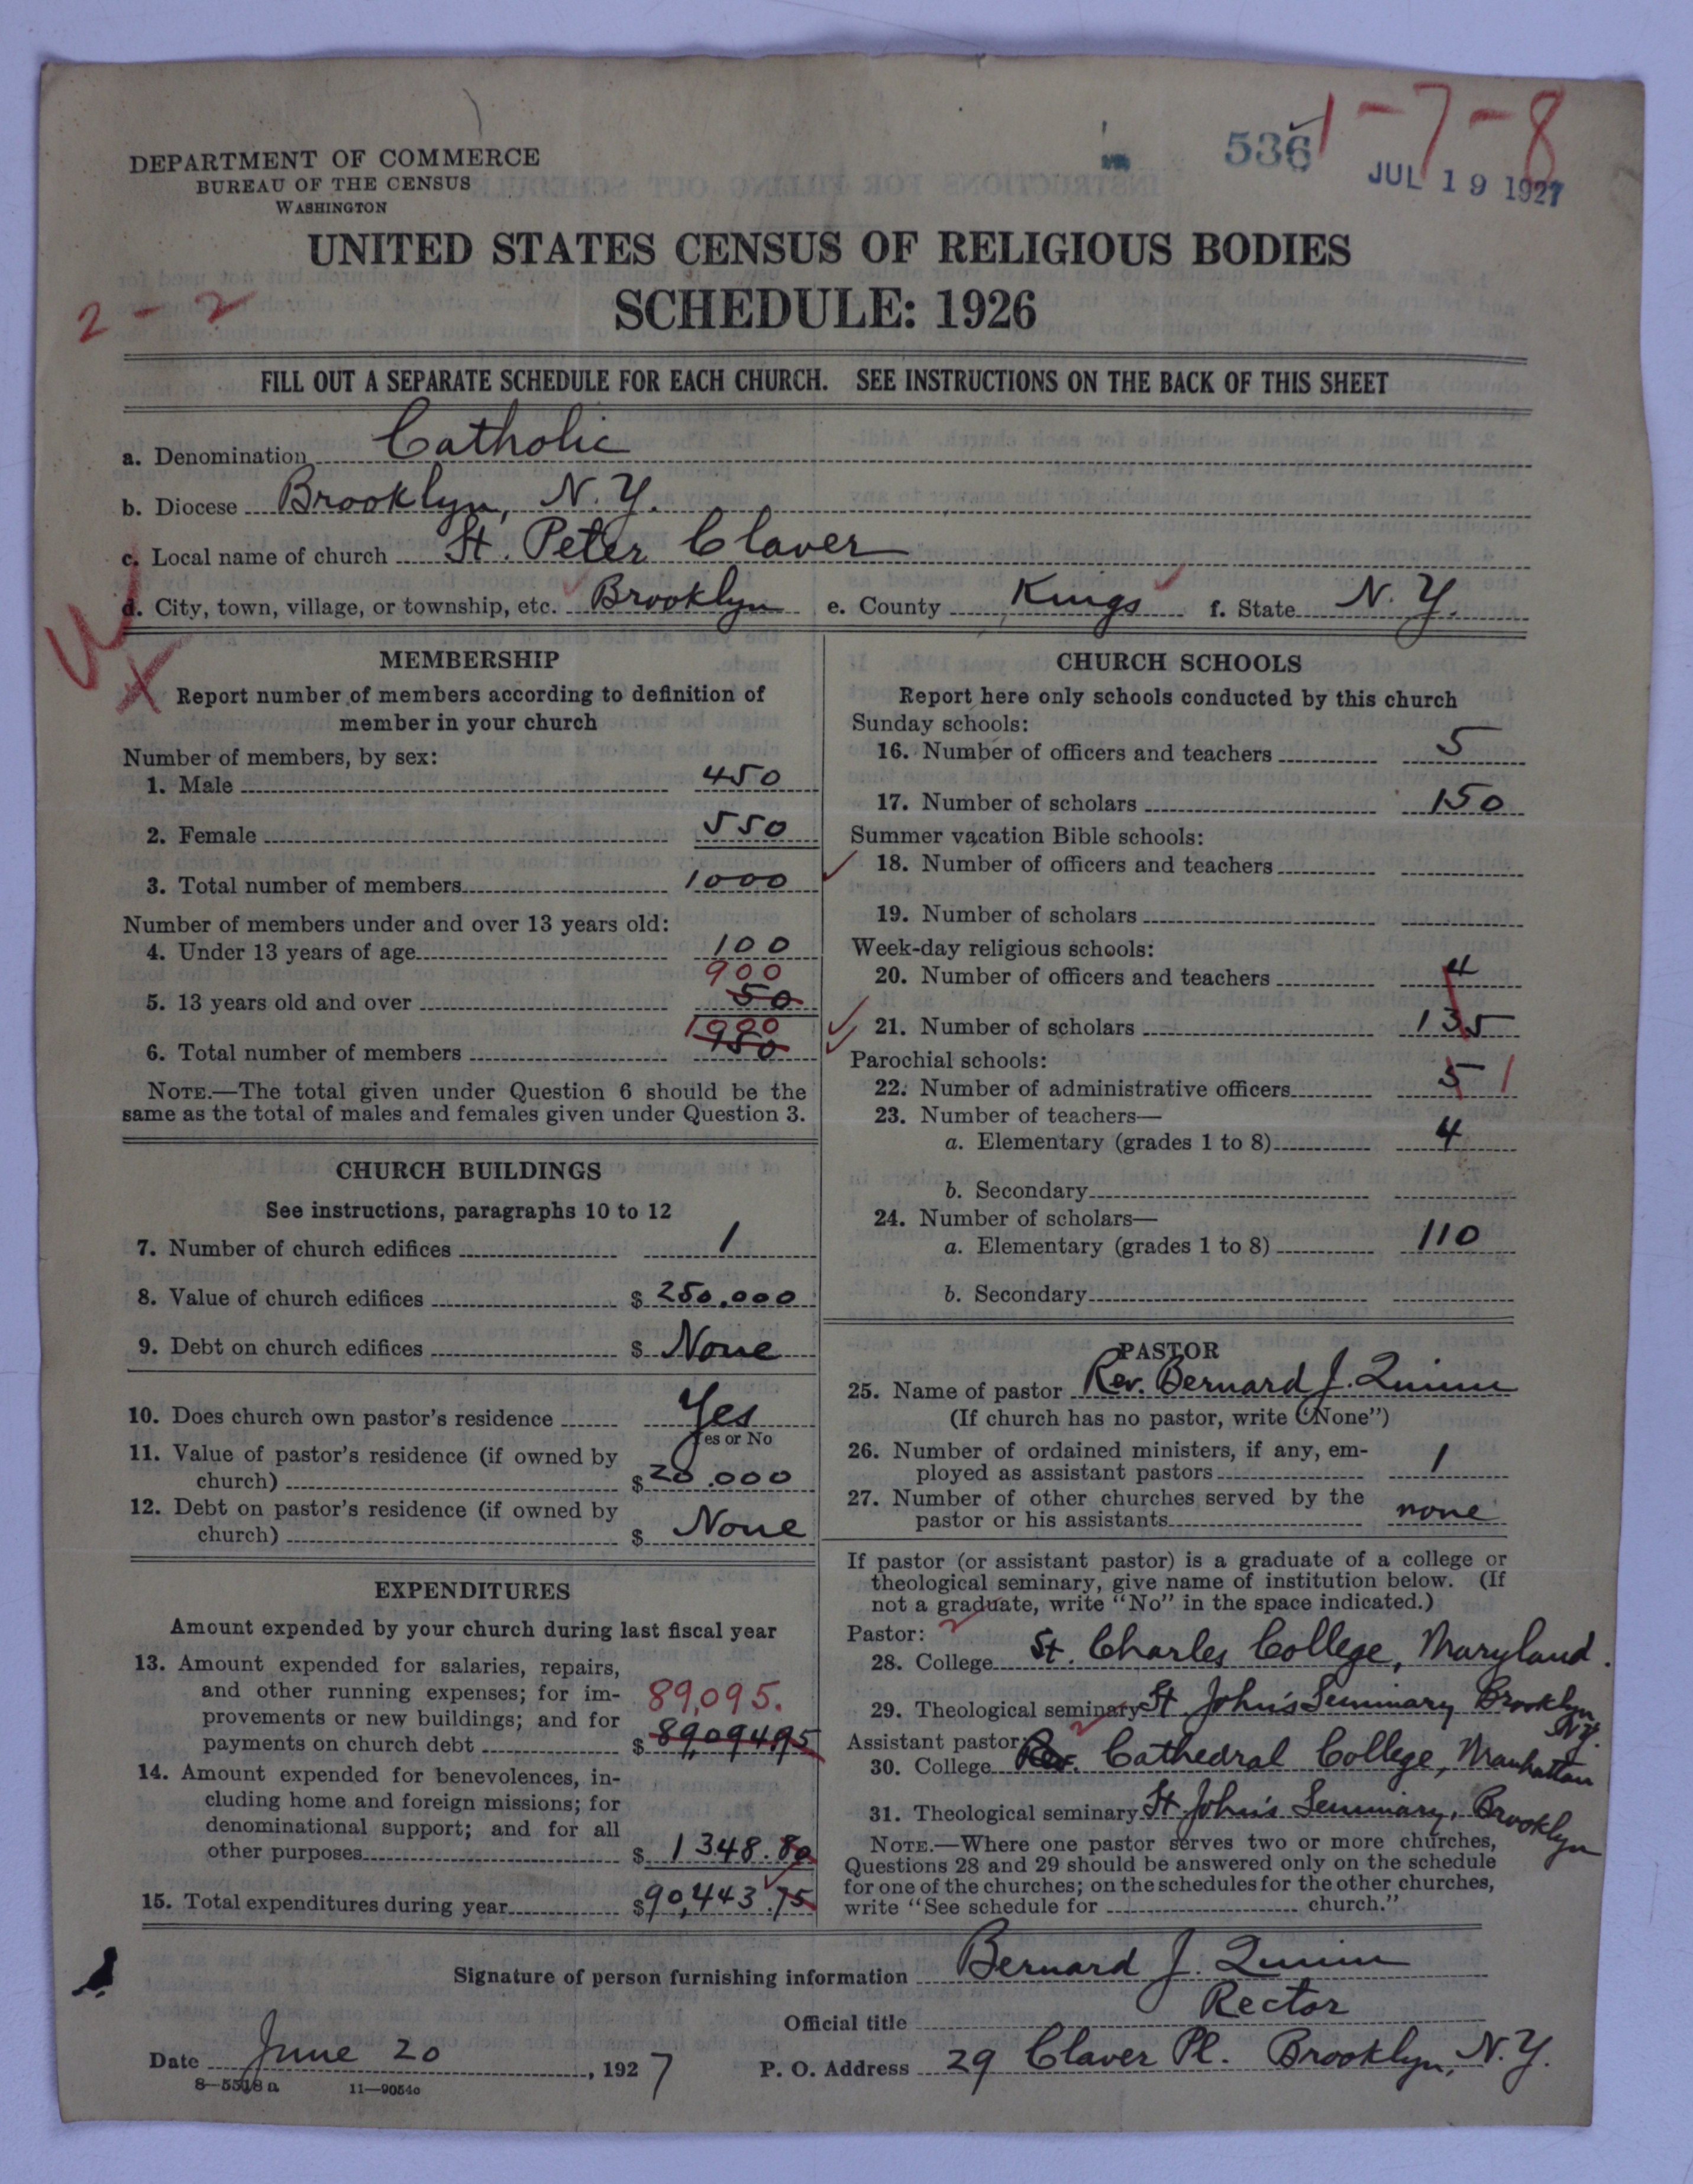 1-7-8
536
JUL 19 1927
DEPARTMENT OF COMMERCE
BUREAU OF THE CENSUS
WASHINGTON
UNITED STATES CENSUS OF RELIGIOUS BODIES
SCHEDULE: 1926
2-2
FILL OUT A SEPARATE SCHEDULE FOR EACH CHURCH. SEE INSTRUCTIONS ON THE BACK OF THIS SHEET
a. Denomination Catholic
b. Diocese Brooklyn, N.Y.
c. Local name of church St. Peter Claver
d. City, town, village, or township, etc. Brooklyn e. County Kings f. State N.Y.
MEMBERSHIP
Report number of members according to definition of
member in your church
Number of members, by sex:
1. Male 450
2. Female 550
3. Total number of members 1000
Number of members under and over 13 years old:
4. Under 13 years of age 100
900
5. 13 years old and over 50
1000
6. Total number of members 950
NOTE.—The total given under Question 6 should be the
same as the total of males and females given under Question 3.
CHURCH BUILDINGS
See instructions, paragraphs 10 to 12
7. Number of church edifices 1
8. Value of church edifices $ 250.000
9. Debt on church edifices $ None
10. Does church own pastor's residence Yes
Yes or No
11. Value of pastor's residence (if owned by
church) $ 20.000
12. Debt on pastor's residence (if owned by
church) $ None
EXPENDITURES
Amount expended by your church during last fiscal year
13. Amount expended for salaries, repairs,
and other running expenses; for im- 89,095.
provements or new buildings; and for
payments on church debt $ 89,094.95
14. Amount expended for benevolences, in-
cluding home and foreign missions; for
denominational support; and for all
other purposes $ 1348.80
15. Total expenditures during year $90,443.75
CHURCH SCHOOLS
Report here only schools conducted by this church
Sunday schools:
16. Number of officers and teachers 5
17. Number of scholars 150
Summer vacation Bible schools:
18. Number of officers and teachers
19. Number of scholars
Week-day religious schools:
20. Number of officers and teachers 4
21. Number of scholars 135
Parochial schools:
22. Number of administrative officers 5 1
23. Number of teachers—
a. Elementary (grades 1 to 8) 4
b. Secondary
24. Number of scholars—
a. Elementary (grades 1 to 8) 110
b. Secondary
PASTOR
25. Name of pastor Rev. Bernard J. Quinn
(If church has no pastor, write "None")
26. Number of ordained ministers, if any, em-
ployed as assistant pastors 1
27. Number of other churches served by the
pastor or his assistants none
If pastor (or assistant pastor) is a graduate of a college or
theological seminary, give name of institution below. (If
not a graduate, write "No" in the space indicated.)
Pastor:
28. College St. Charles College, Maryland.
29. Theological seminary St John's Seminary Brooklyn, N.Y.
Assistant pastor:
30. College Rev. Cathedral College, Manhattan
31. Theological seminary St John's Seminary, Brooklyn
NOTE.—Where one pastor serves two or more churches,
Questions 28 and 29 should be answered only on the schedule
for one of the churches; on the schedules for the other churches,
write "See schedule for church."
Signature of person furnishing information Bernard J. Quinn
Official title Rector
Date June 20, 1927 P. O. Address 29 Claver Pl. Brooklyn, N.Y.
8—5518a 11—9054c